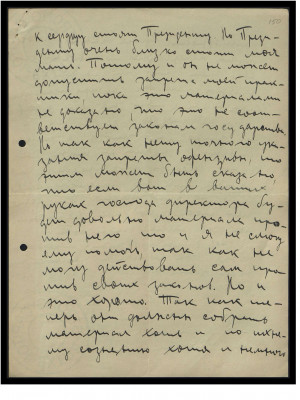 к сердцу стоит Президенту. Но Прези-
денту очень близко стоит моя
Потому и он не может
допустить запрета моей прак-
тики пока это материалами
не доказано, что это не соот-
ветствует законам государства.
Но так как нету точного ука-
зания запретить офензивы, то
этим может быть сказано,
что если вот в ваших
руках господа директора бу-
дет довольно материала про-
тив него то и я не смогу
ему помочь, так как не
могу действовать сам про-
тив своих законов. Но и
это хорошо. Так как те-
перь они должны собрать
материал хотя и по ихне-
му сознанию хотя и немного